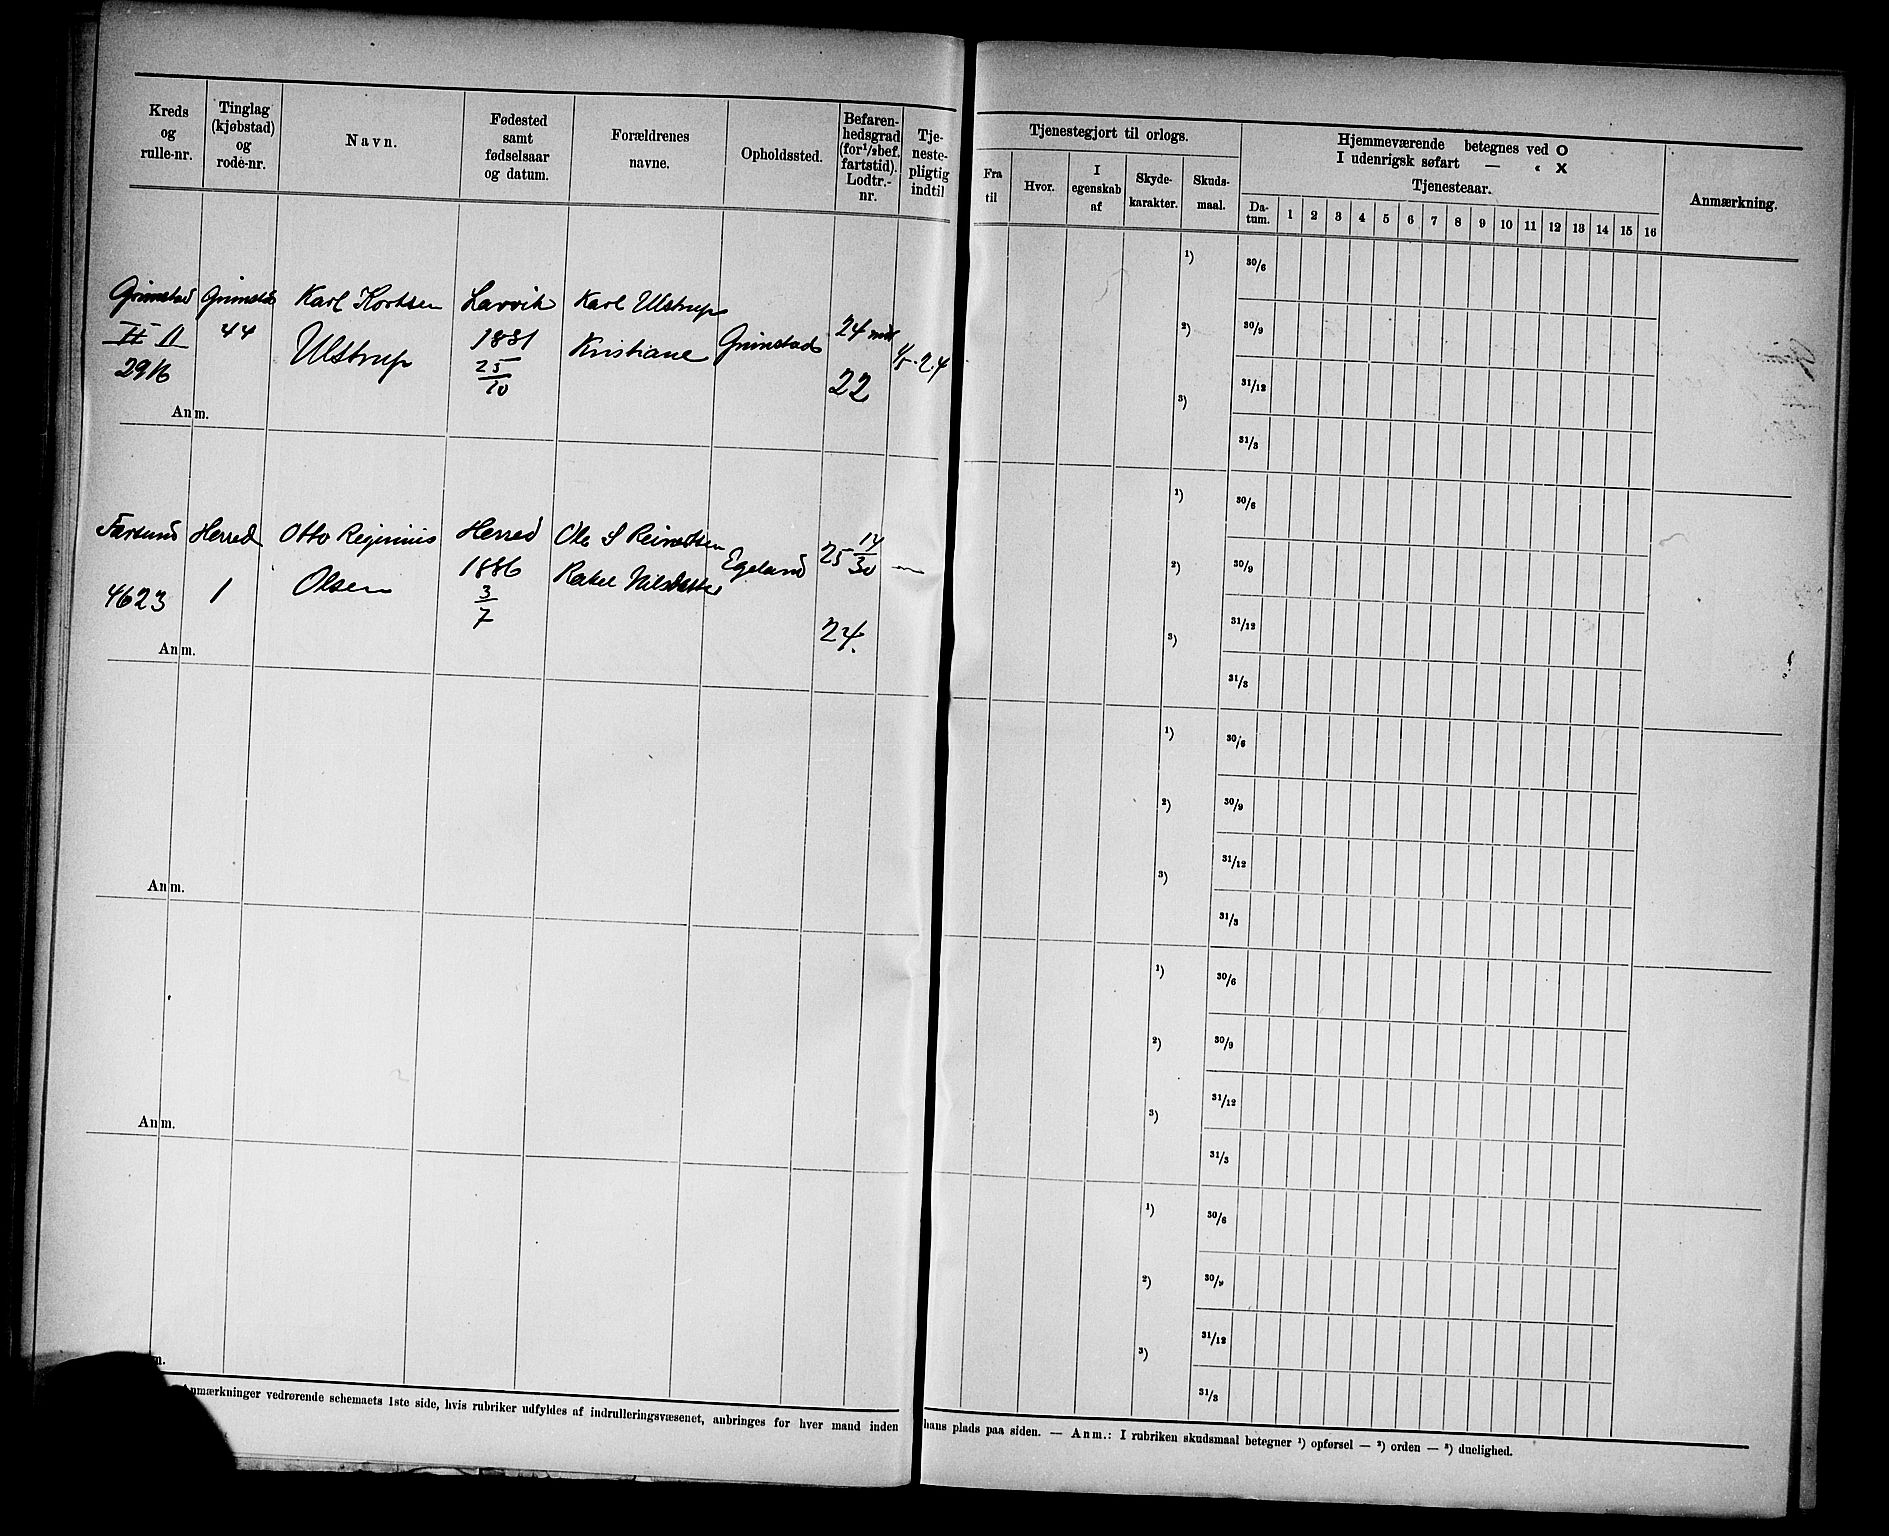 Kreds og rulle-nr.
Tinglag (kjøbstad) og rode-nr.
Navn.
Fødested samt fødselsaar og datum.
Forældrenes navne.
Opholdssted.
Befaren-hedsgrad (for 1/2 bef. fartstid). Lodtr.-nr.
Tje-neste-pligtig indtil
Tjenestegjort til orlogs.
Fra til
Hvor.
I egenskab af
Skyde-karakter.
Skuds-maal.
Hjemmeværende betegnes ved O
I udenrigsk søfart — « X
Tjenesteaar.
Da-tum. 1 2 3 4 5 6 7 8 9 10 11 12 13 14 15 16
Anmærkning.
Grimstad Grimstad Karl Kortsen Larvik Karl Ulstrup
II 11 44 Ulstrup 1881 Kristiane Grimstad 24 1/5.24
2916 25/10 22
Anm.
1) 30/6
2) 30/9
31/12
3)
31/3
Farsund Herred Otto Reginius Herred Ole S Reinertsen
4623 1 Olsen 1886 Rakel Nilsdatter Egeland 25 14/30 —
3/7 24.
Anm.
1) 30/6
2) 30/9
31/12
3)
31/3
Anm.
1) 30/6
2) 30/9
31/12
3)
31/3
Anm.
1) 30/6
2) 30/9
31/12
3)
31/3
m.
1) 30/6
2) 30/9
31/12
3)
31/3
Anmærkninger vedrørende schemaets 1ste side, hvis rubriker udfyldes af indrulleringsvæsenet, anbringes for hver mand inden hans plads paa siden. — Anm.: I rubriken skudsmaal betegner 1) opførsel — 2) orden — 3) duelighed.